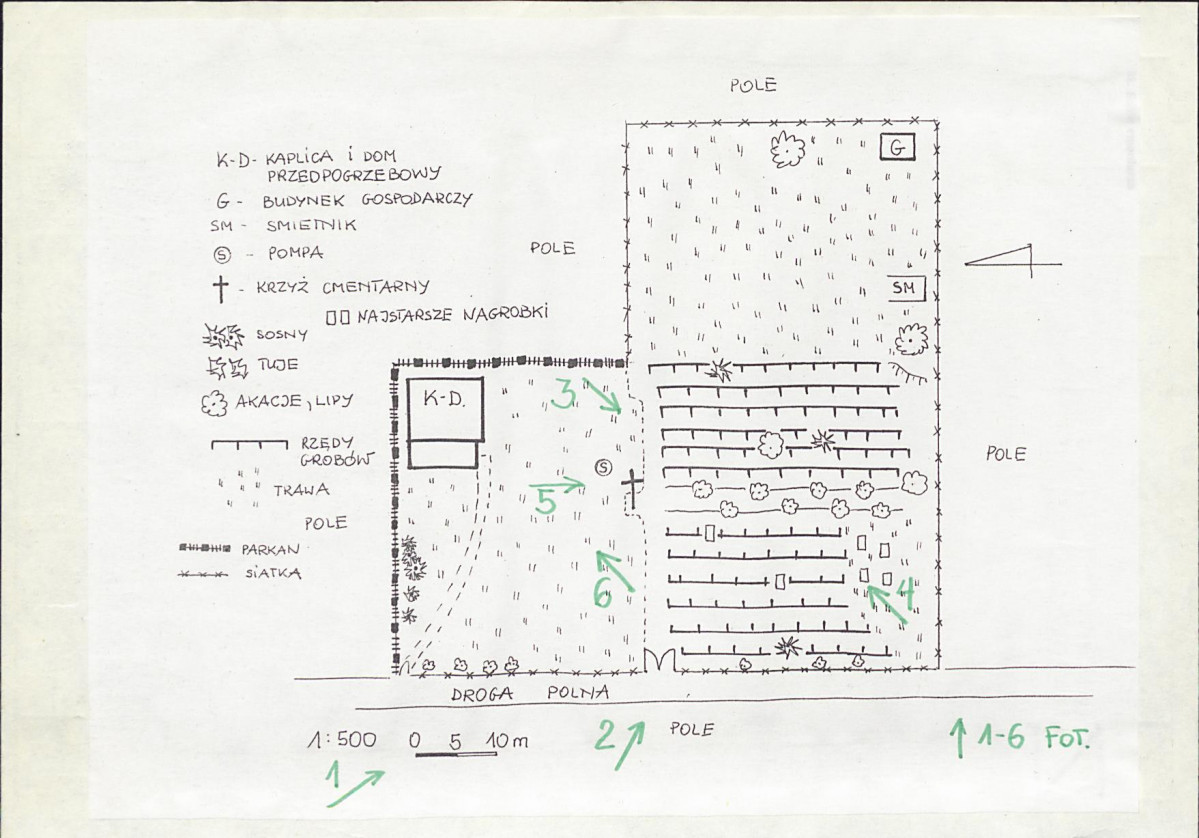 POLE
K-D- KAPLICA i DOM
PRZEDPOGRZEBOWY
G - BUDYNEK GOSPODARCZY
SM - SMIETNIK
S - POMPA
- KRZYŻ CMENTARNY
NAJSTARSZE NAGROBKI
SOSNY
TUJE
AKACJE, LIPY
RZĘDY
GROBÓW
TRAWA
POLE
PARKAN
SIATKA
POLE
G
SM
K-D.
3
S
5
6
4
POLE
DROGA POLNA
1:500 0 5 10 m
1
2
POLE
1-6 FOT.